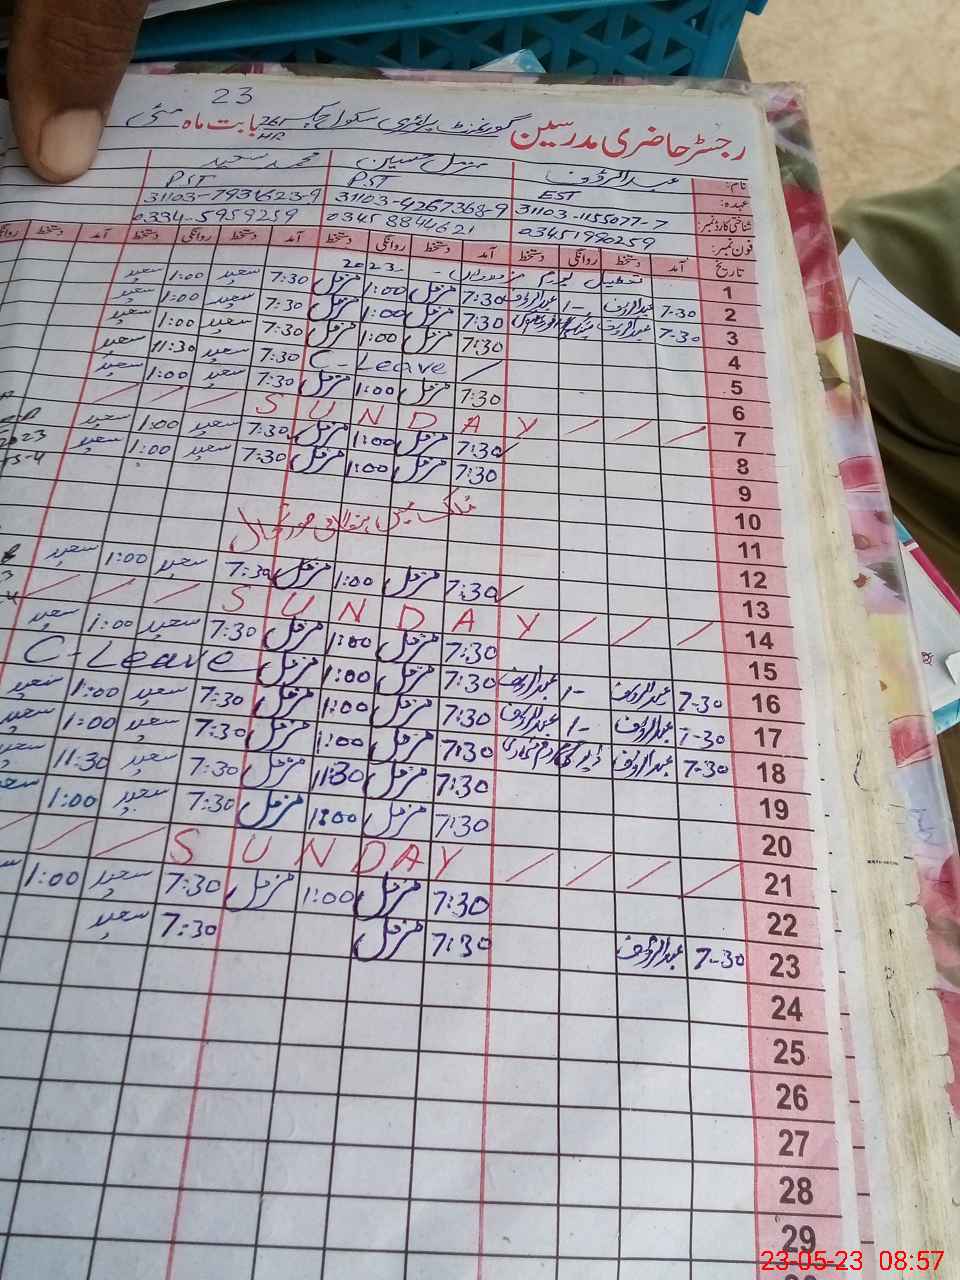 23
رجسٹر حاضری مدرسین گورنمنٹ پرائمری سکول چک 261 HR بابت ماہ مئی
نام: عبدالرؤف مزمل حسین محمد سعید
عہدہ: EST PST PST
شناختی کارڈ نمبر: 31103-1155077-7 31103-4267368-9 31103-7931623-9
فون نمبر: 03451990259 0345 8844621 0334-5959259
تاریخ آمد دستخط روانگی دستخط آمد دستخط روانگی دستخط آمد دستخط روانگی دستخط آمد
1 تعطیل یوم مزدوراں 2023
2 7-30 عبدالرؤف 1- عبدالرؤف 7:30 مزمل 1:00 مزمل 7:30 سعید 1:00 سعید
3 7-30 عبدالرؤف 7:30 مزمل 1:00 مزمل 7:30 سعید 1:00 سعید
4 7:30 مزمل 1:00 مزمل 7:30 سعید 1:00 سعید
5 C-Leave 7:30 سعید 11:30 سعید
6 7:30 مزمل 1:00 مزمل 7:30 سعید 1:00 سعید
7 / / / S U N D A Y / / /
8 7:30 مزمل 1:00 مزمل 7:30 سعید 1:00 سعید
9 7:30 مزمل 1:00 مزمل 7:30 سعید 1:00 سعید
10
11 ملک میں ہنگامی صورتحال
12
13 7:30 مزمل 1:00 مزمل 7:30 سعید 1:00 سعید
14 / / / S U N D A Y / / /
15 7:30 مزمل 1:00 مزمل 7:30 سعید 1:00 سعید
16 7-30 عبدالرؤف 1- عبدالرؤف 7:30 مزمل 1:00 مزمل C-Leave
17 7-30 عبدالرؤف 1- عبدالرؤف 7:30 مزمل 1:00 مزمل 7:30 سعید 1:00 سعید
18 7-30 عبدالرؤف 7:30 مزمل 1:00 مزمل 7:30 سعید 1:00 سعید
19 7:30 مزمل 11:30 مزمل 7:30 سعید 11:30 سعید
20 7:30 مزمل 1:00 مزمل 7:30 سعید 1:00 سعید
21 / / / / S U N D A Y / / /
22 7:30 مزمل 1:00 مزمل 7:30 سعید 1:00
23 7-30 عبدالرؤف 7:30 مزمل 7:30 سعید
24
25
26
27
28
29
23-05-23 08:57